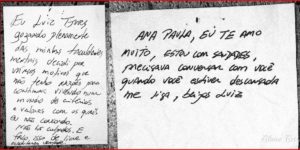 Eu Luiz Torres
gozando plenamente
das minhas faculdades
mentais decidi por
vários motivos que
não tenho razões para
continuar vivendo num
mundo de
e valores com os quais
eu não concordo.
Mas há culpados. E
tão, isso de livre e
ANA PAULA, EU TE AMO
MUITO, ESTOU COM SAUDADES,
PRECISAVA CONVERSAR COM VOCÊ
QUANDO VOCÊ ESTIVER DESCANSADA
ME LIGA, beijos LUIZ